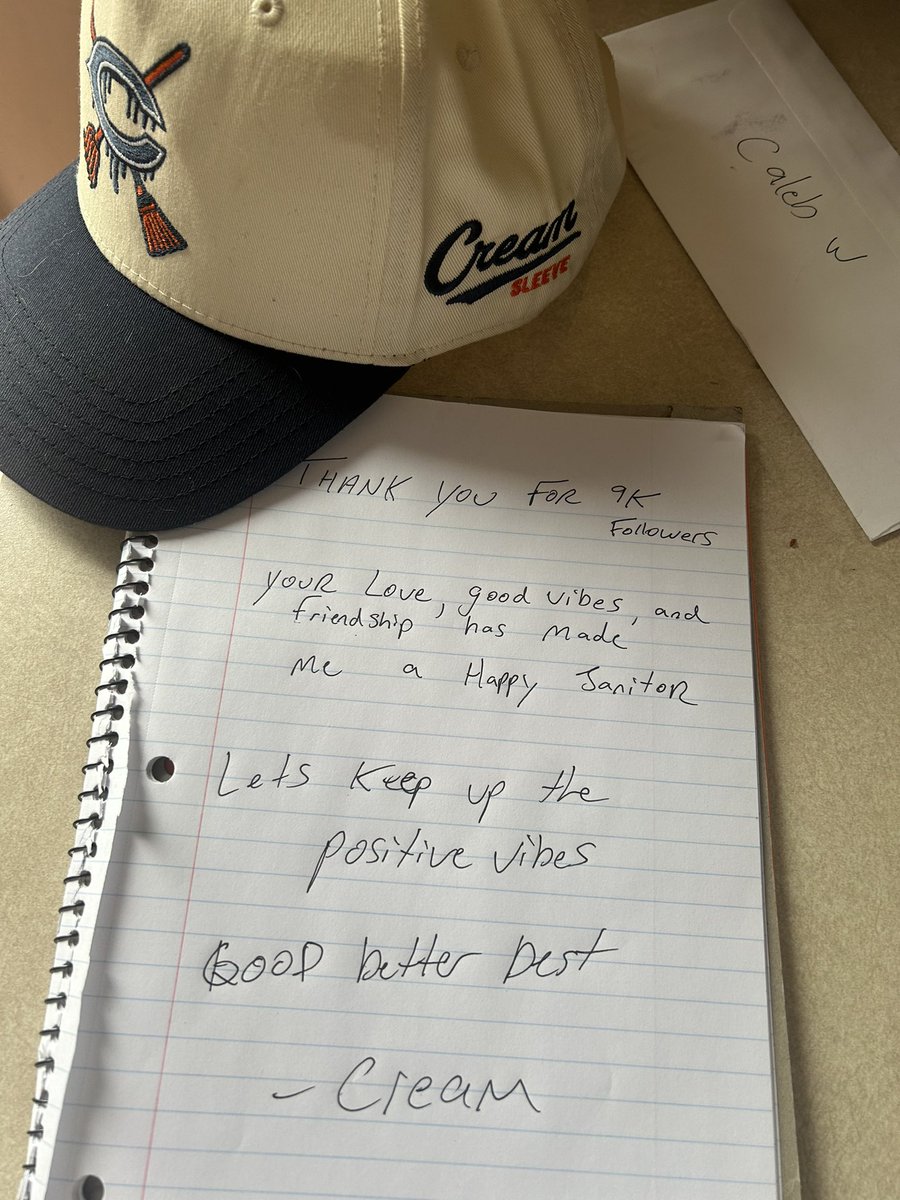 C
Cream
SLEEVE
Caleb W
THANK YOU FOR 9K
Followers
YOUR Love, good vibes, and
friendship has made
Me a Happy JanitoR
Lets Keep up the
positive vibes
GOOD better best
- Cream